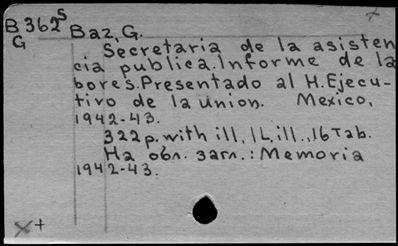 B 362 S
G
Baz, G.
Secretaria de la asisten
cia publica. Informe de la
bores. Presentado al H. Ejecu-
tivo de la union. Mexico,
1942-43.
322 p. with ill, 1 L. ill., 16 Tab.
На обл. загл.: Memoria
1942-43.